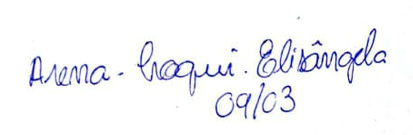 Arena - Iraqui. Elisângela
09/03